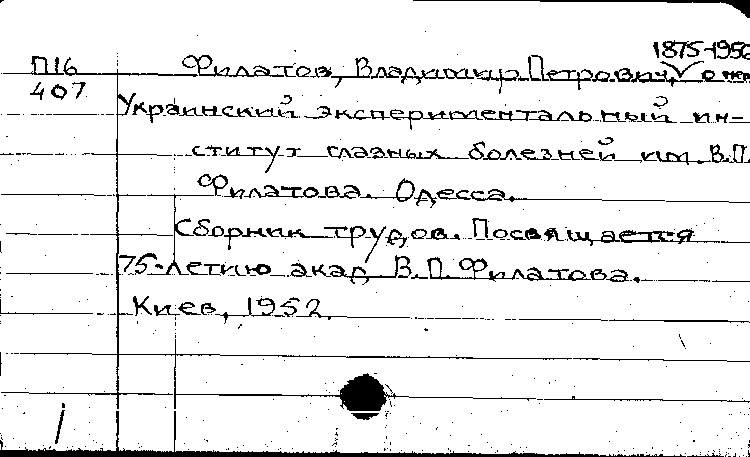 1875-1956
П16 Филатов, Владимир Петрович, о нем
407
Украинский экспериментальный ин-
ститут глазных болезней им. В.П.
Филатова. Одесса.
Сборник трудов. Посвящается
75-летию акад. В.П. Филатова.
Киев, 1952.